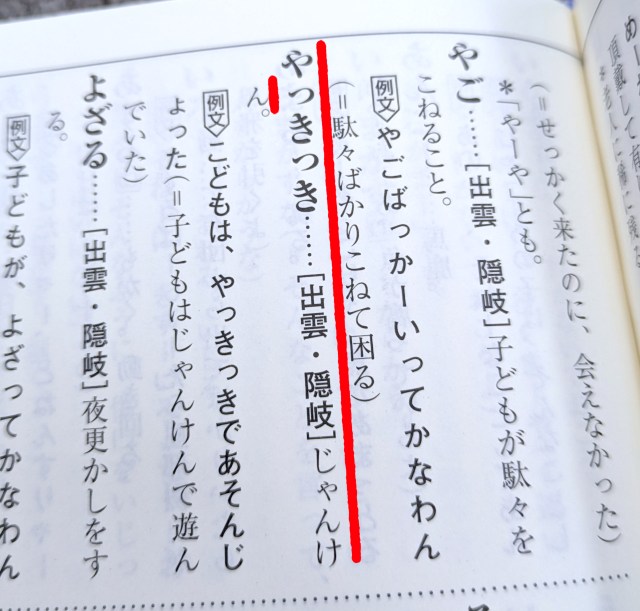 (=せっかく来たのに、会えなかった)
*「やーや」とも。
やご……[出雲・隠岐]子どもが駄々を
こねること。
例文 やごばっかーいってかなわん
(=駄々ばかりこねて困る)
やっきっき……[出雲・隠岐]じゃんけ
ん。
例文 こどもは、やっきっきであそんじ
ょった(=子どもはじゃんけんで遊ん
でいた)
よざる……[出雲・隠岐]夜更かしをす
る。
例文 子どもが、よざってかなわん